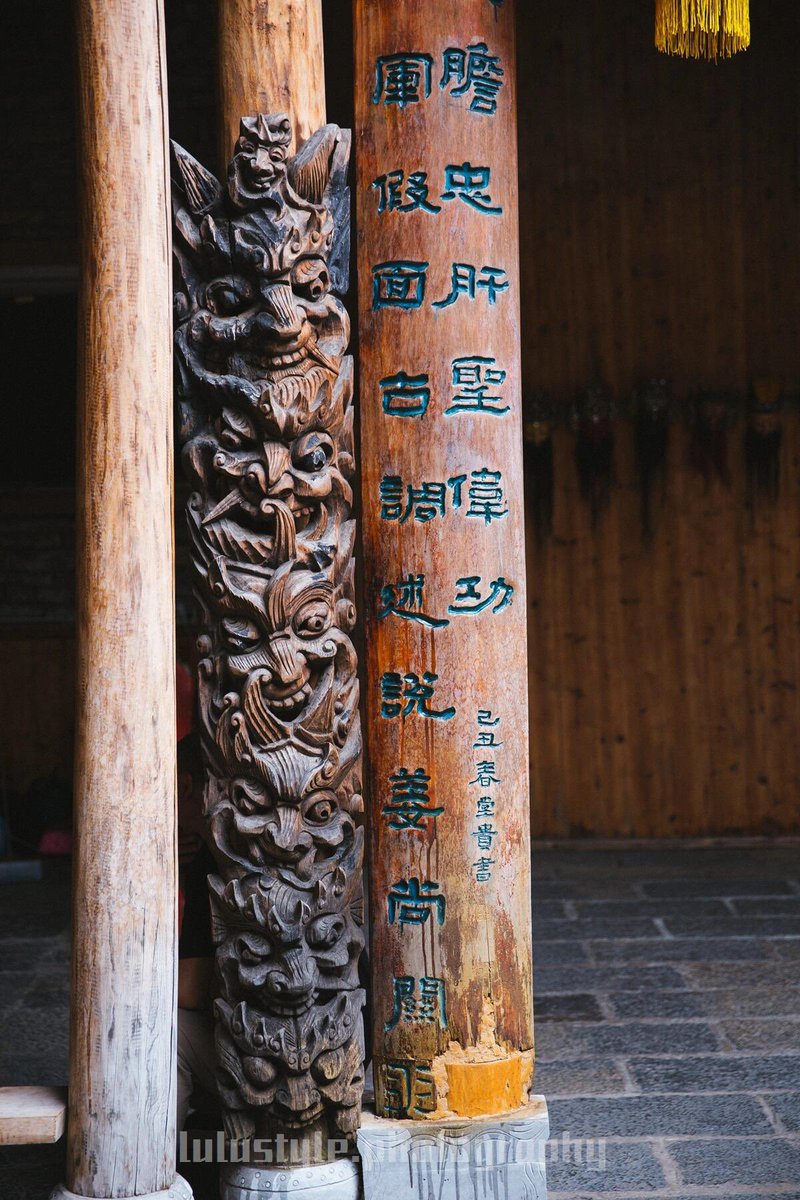 軍假面古調述說姜尚關羽
膽忠肝聖偉功
己丑春堂貴書
lulustyle.photography